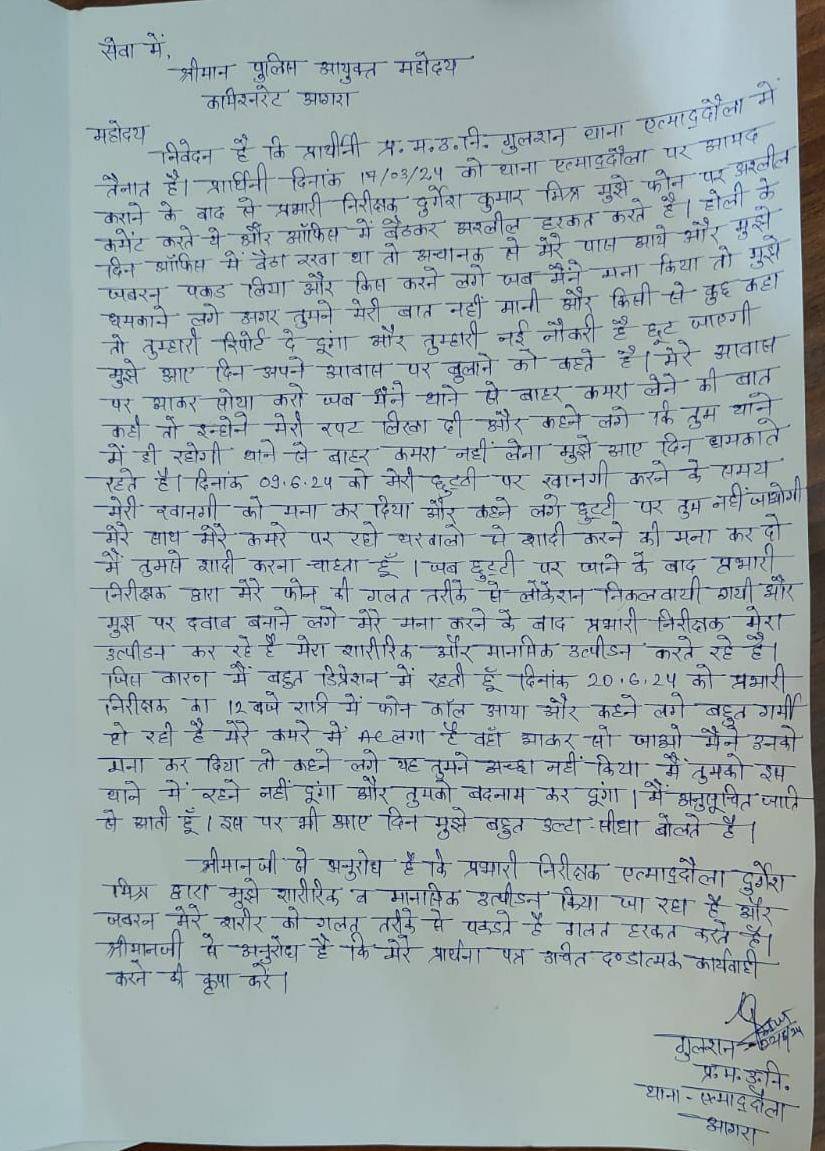 सेवा में,
श्रीमान पुलिस आयुक्त महोदय
कमिश्नरेट आगरा
महोदय
निवेदन है कि प्रार्थीनी प्र.म.उ.नि. गुलशन थाना एत्माद्दौला में
तैनात है। प्रार्थिनी दिनांक 17/03/24 को थाना एत्माद्दौला पर आमद
कराने के बाद से प्रभारी निरीक्षक दुर्गेश कुमार मिश्र मुझे फोन पर अश्लील
कमेंट करते थे और ऑफिस में बैठकर अश्लील हरकत करते है। होली के
दिन ऑफिस में बैठा रखा था तो अचानक से मेरे पास आये और मुझे
जबरन पकड लिया और किस करने लगे जब मैंने मना किया तो मुझे
धमकाने लगे अगर तुमने मेरी बात नहीं मानी और किसी से कुछ कहा
तो तुम्हारी रिपोर्ट दे दूंगा और तुम्हारी नई नौकरी है छूट जाएगी
मुझे आए दिन अपने आवास पर बुलाने को कहते है। मेरे आवास
पर आकर सोया करो जब मैंने थाने से बाहर कमरा लेने की बात
कही तो इन्होने मेरी रपट लिखा दी और कहने लगे कि तुम थाने
में ही रहोगी थाने से बाहर कमरा नहीं लेना मुझे आए दिन धमकाते
रहते है। दिनांक 09.6.24 को मेरी छुट्टी पर रवानगी करने के समय
मेरी रवानगी को मना कर दिया और कहने लगे छुट्टी पर तुम नहीं जाओगी
मेरे साथ मेरे कमरे पर रहो घरवालो से शादी करने की मना कर दो
मैं तुमसे शादी करना चाहता हूँ। जब छुट्टी पर जाने के बाद प्रभारी
निरीक्षक द्वारा मेरे फोन की गलत तरीके से लोकेशन निकलवायी गयी और
मुझ पर दवाव बनाने लगे मेरे मना करने के बाद प्रभारी निरीक्षक मेरा
उत्पीडन कर रहे है मेरा शारीरिक और मानसिक उत्पीडन करते रहे है।
जिस कारण मैं बहुत डिप्रेशन में रहती हूँ दिनांक 20.6.24 को प्रभारी
निरीक्षक का 12 बजे रात्रि में फोन कॉल आया और कहने लगे बहुत गर्मी
हो रही है मेरे कमरे में AC लगा है वहाँ आकर सो जाओ मैंने उनको
मना कर दिया तो कहने लगे यह तुमने अच्छा नहीं किया मैं तुमको इस
थाने में रहने नहीं दूंगा और तुमको बदनाम कर दूंगा। मैं अनुसूचित जाति
से आती हूँ। इस पर भी आए दिन मुझे बहुत उल्टा-सीधा बोलते है।
श्रीमानजी से अनुरोध है कि प्रभारी निरीक्षक एत्माद्दौला दुर्गेश
मिश्र द्वारा मुझे शारीरिक व मानसिक उत्पीडन किया जा रहा है और
जबरन मेरे शरीर को गलत तरीके से पकडते है गलत हरकत करते है।
श्रीमानजी से अनुरोध है कि मेरे प्रार्थना पत्र उचित दण्डात्मक कार्यवाही
करने की कृपा करें।
गुलशन
प्र.म.उ.नि.
थाना - एत्माद्दौला
आगरा